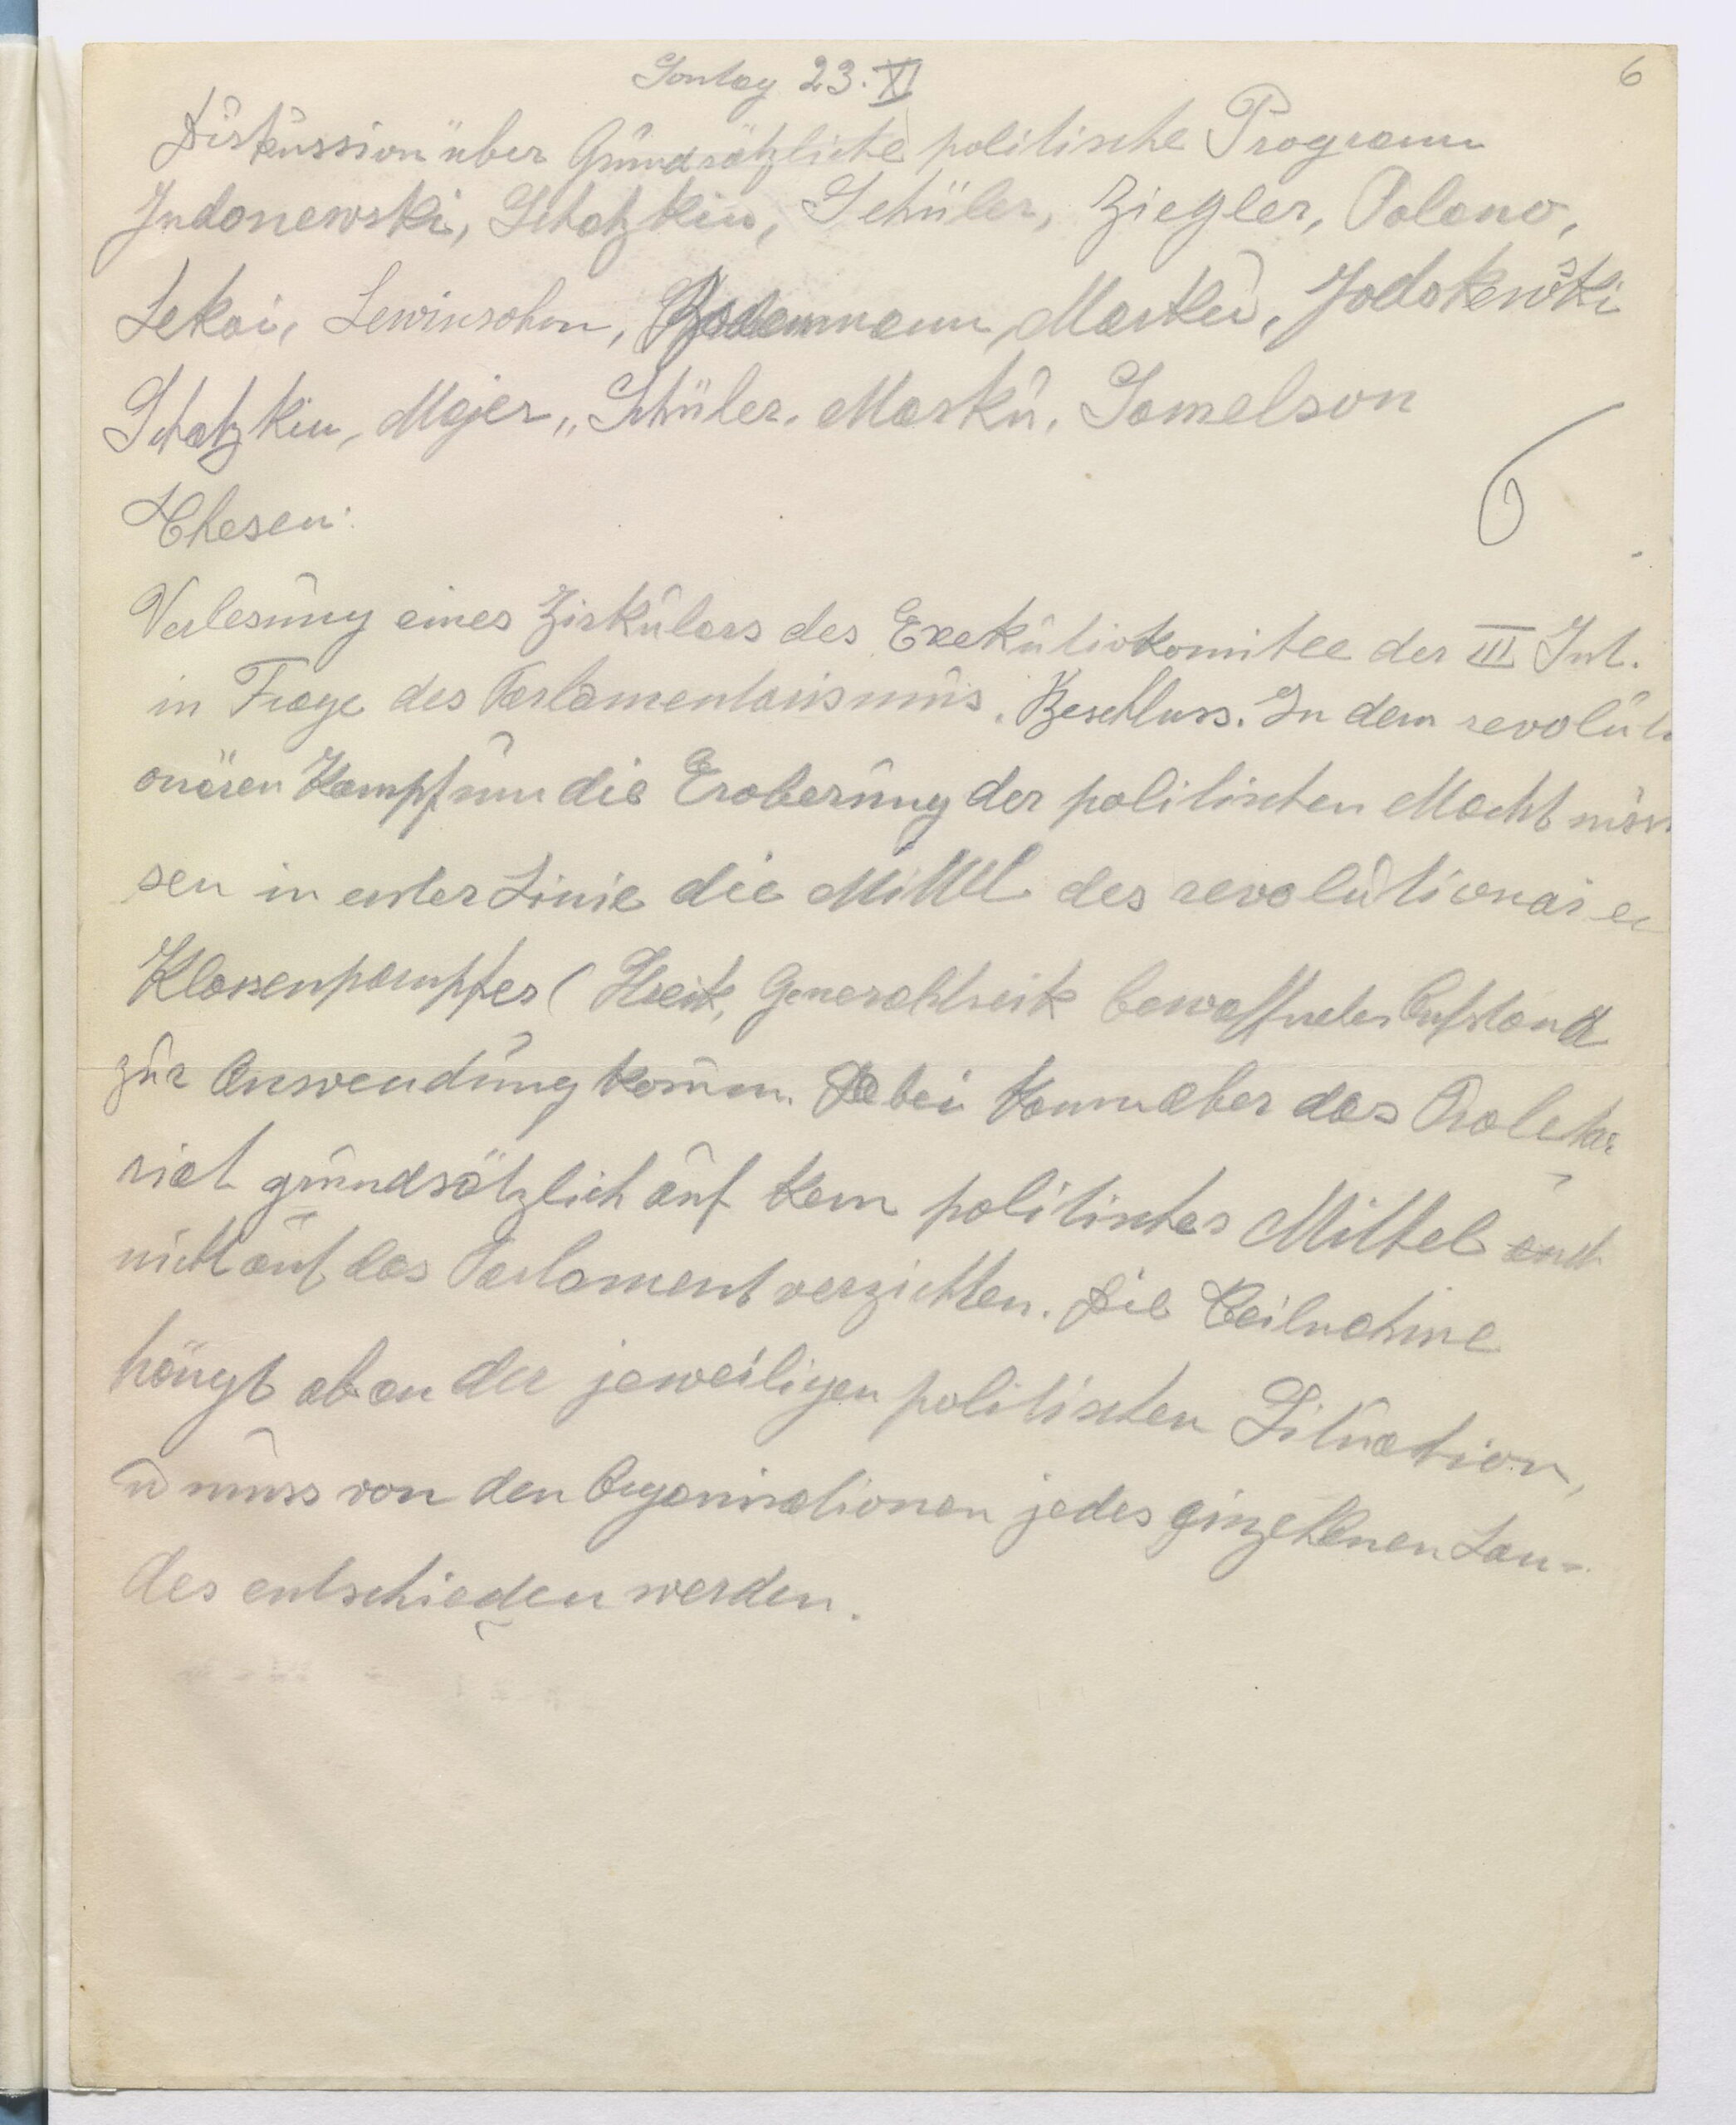 Sontag 23. XI
6
Diskussion über Grundsätzliche politische Programm
Judonewski, Schatzkin, Schüler, Ziegler, Polano,
Lekai, Lewinsohn, Marku, Jodokewski
Schatzkin, Majer, Schüler, Marku, Samelson
6
Thesen:
Verlesung eines Zirkulars des Exekutivkomitee der III Int.
in Frage des Parlamentarismus. Beschluss. In dem revoluti
onären Kampf um die Eroberung der politischen Macht müs
sen in erster Linie die Mittel des revolutionären
Klassenpampfes (Streik, Generalstreik bewaffneter Aufstand
zur Anwendung komm. Dabei kann aber das Proleta
riat grundsätzlich auf kein politisches Mittel auch
nicht auf das Parlament verzichten. Die Teilnahme
hängt ab an der jeweiligen politischen Situation,
u muss von den Organisationen jedes einzelnen Lan-
des entschieden werden.